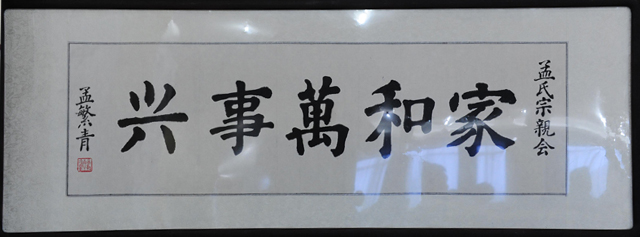 孟氏宗親会
家和萬事兴
孟繁青